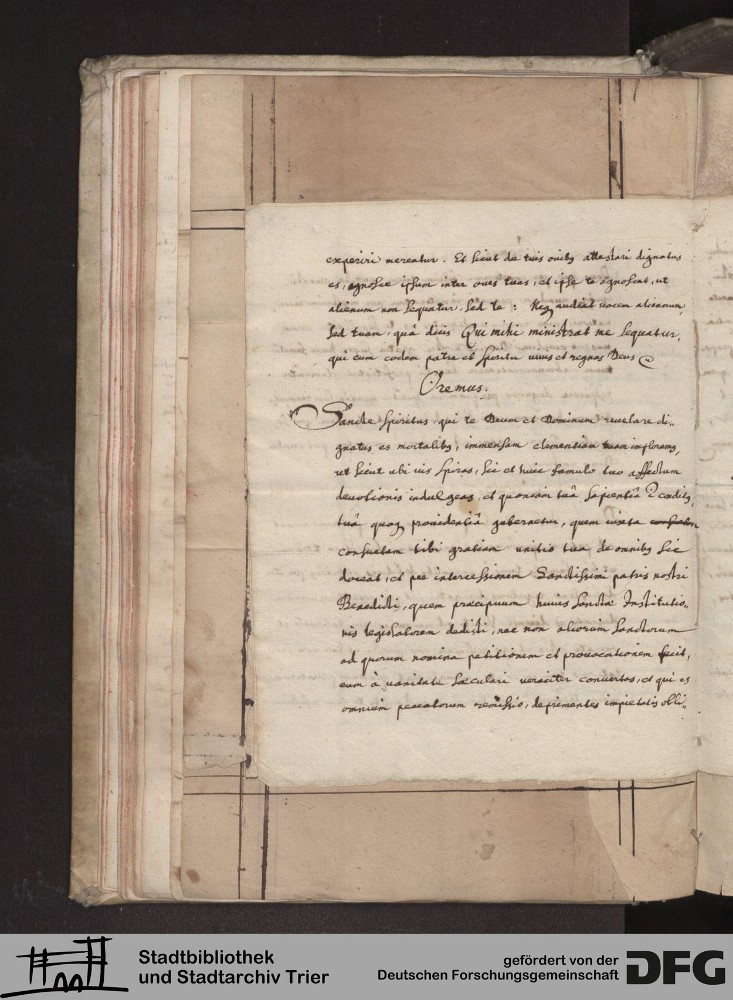 experiri mereatur. Et sicut de tuis ovibꝫ attestari dignatus
es, agnosce ipsum inter oves tuas, et ipse te agnoscat, ut
alienum non sequatur, sed te: Neqꝫ audiat vocem alienam,
sed tuam, quâ dicis Qui mihi ministrat me sequatur,
qui cum eodem patre et spiritu vivis et regnas Deus
Oremus.
Sancte spiritus, qui te Deum et Dominum revelare di„
gnatus es mortalibꝫ, immensam clementiam tuam imploramꝫ,
ut sicut ubi vis spiras, sic et huic famulo tuo affectum
devotionis indulgeas, et quoniam tuâ sapientiâ ē conditꝫ,
tuâ quoqꝫ providentiâ gubernetur, quem iuxta
consuetam tibi gratiam unctio tua de omnibꝫ sic
doceat, et per intercessionem Sanctissimi patris nostri
Benedicti, quem præcipuum huius sanctæ Institutio„
nis legislatorem dedisti, nec non aliorum sanctorum
ad quorum nomina petitionem et provocationem fecit,
eum à vanitate sæculari veraciter convertas, et qui es
omnium peccatorum remissio, deprimentes impietatis obli„
Stadtbibliothek
und Stadtarchiv Trier
gefördert von der
Deutschen Forschungsgemeinschaft
DFG